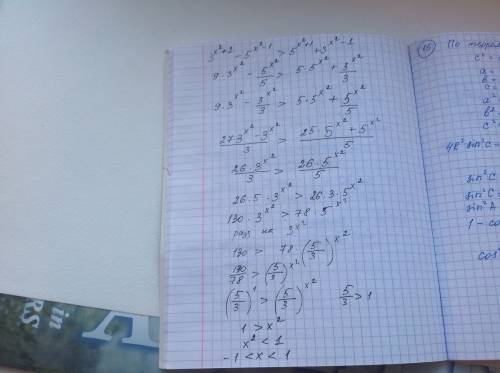 3^(x²+2) - 5^(x²-1) > 5^(x²+1) + 3^(x²-1)
9·3^(x²) - 5^(x²)/5 > 5·5^(x²) + 3^(x²)/3
9·3^(x²) - 3^(x²)/3 > 5·5^(x²) + 5^(x²)/5
(27·3^(x²) - 3^(x²))/3 > (25·5^(x²) + 5^(x²))/5
26·3^(x²)/3 > 26·5^(x²)/5
26·5·3^(x²) > 26·3·5^(x²)
130·3^(x²) > 78·5^(x²)
на 3^(x²)
130 > 78·(5/3)^(x²)
130/78 > (5/3)^(x²)
(5/3)^1 > (5/3)^(x²) 5/3 > 1
1 > x²
x² < 1
-1 < x < 1
16 По
c² =
a =
b =
c =
a²
b²
c²
sin²C =
sin²C
sin²C =
sin²A
1 - co
cos
in
RS